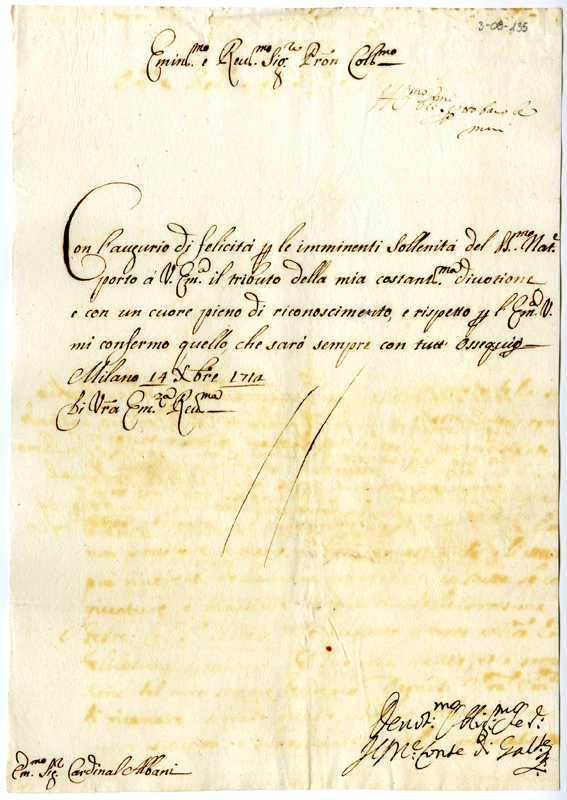 3-08-135
Emin.mo e Reu.mo Sig.re Pron Coll.mo
Con l'augurio di felicità p le imminenti Sollenità del SS.mo Nat.e
porto à V. Em.a il tributo della mia costantis.ma divotione
e con un cuore pieno di riconoscimento, e rispetto p l'Em.a V.
mi confermo quello, che sarò sempre con tutt Ossequio
Milano 14 Xbre 1714
Di Vra Em.za Reu.ma
Deuot.mo Obbl.mo Se.e
Il M.e Conte di
Em.mo Sig.r Cardinal Albani